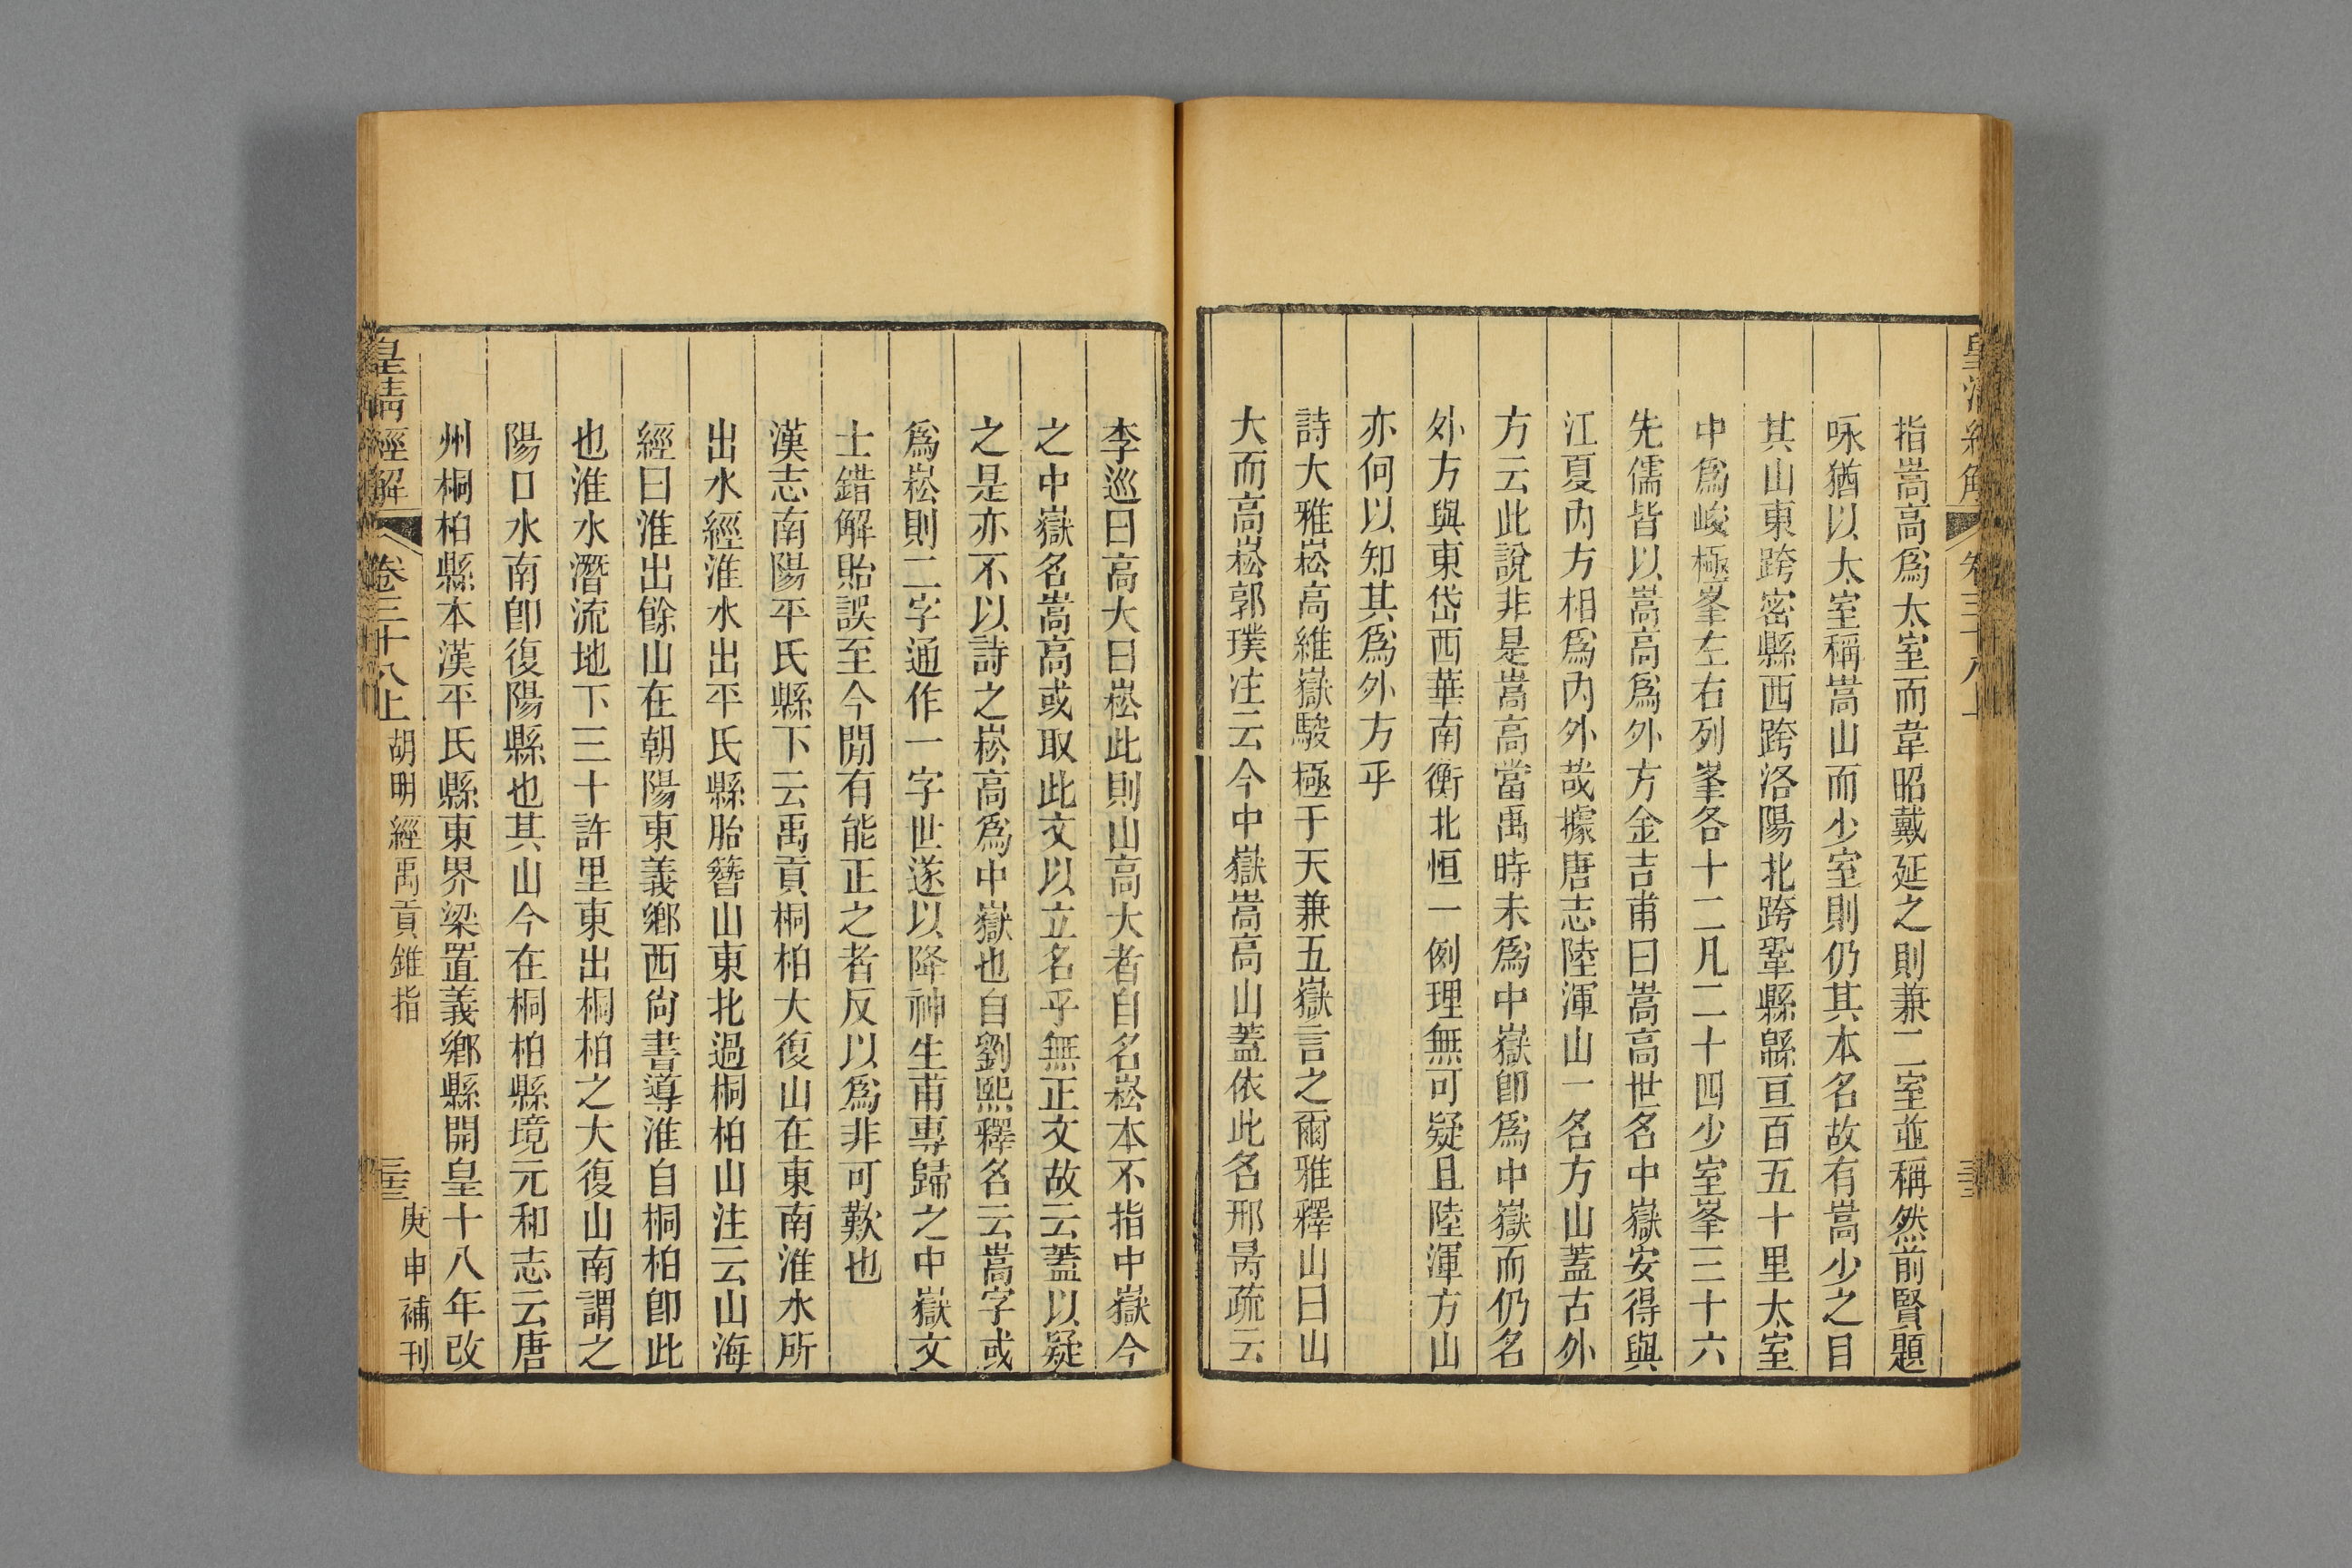 指嵩高爲太室而韋昭戴延之則兼二室並稱然前賢題
咏猶以太室稱嵩山而少室則仍其本名故有嵩少之目
其山東跨密縣西跨洛陽北跨鞏縣緜亘百五十里太室
中爲峻極峯左右列峯各十二凡二十四少室峯三十六
先儒皆以嵩高爲外方金吉甫曰嵩高世名中嶽安得與
江夏內方相爲內外哉據唐志陸渾山一名方山蓋古外
方云此說非是嵩高當禹時未爲中嶽卽爲中嶽而仍名
外方與東岱西華南衡北恒一例理無可疑且陸渾方山
亦何以知其爲外方乎
詩大雅崧高維嶽駿極于天兼五嶽言之爾雅釋山曰山
大而高崧郭璞注云今中嶽嵩高山蓋依此名邢昺疏云
李巡曰高大曰崧此則山高大者自名崧本不指中嶽今
之中嶽名嵩高或取此文以立名乎無正文故云蓋以疑
之是亦不以詩之崧高爲中嶽也自劉熙釋名云嵩字或
爲崧則二字通作一字世遂以降神生甫專歸之中嶽文
士錯解貽誤至今閒有能正之者反以爲非可歎也
漢志南陽平氏縣下云禹貢桐柏大復山在東南淮水所
出水經淮水出平氏縣胎簪山東北過桐柏山注云山海
經曰淮出餘山在朝陽東義鄉西尙書導淮自桐柏卽此
也淮水潛流地下三十許里東出桐柏之大復山南謂之
陽口水南卽復陽縣也其山今在桐柏縣境元和志云唐
州桐柏縣本漢平氏縣東界梁置義鄉縣開皇十八年改
皇清經解 卷三十八上 胡明經禹貢錐指 庚申補刊